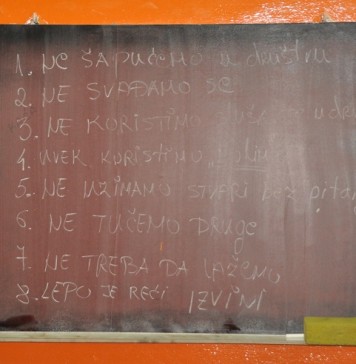 1. NE ŠAPUĆEMO u društvu
2. NE SVAĐAMO SE
3. NE KORISTIMO
4. UVEK KORISTIMO
5. NE UZIMAMO STVARI bez pita
6. NE TUČEMO DRUGE
7. NE TREBA DA LAŽEMO
8. LEPO JE REĆI IZVINI